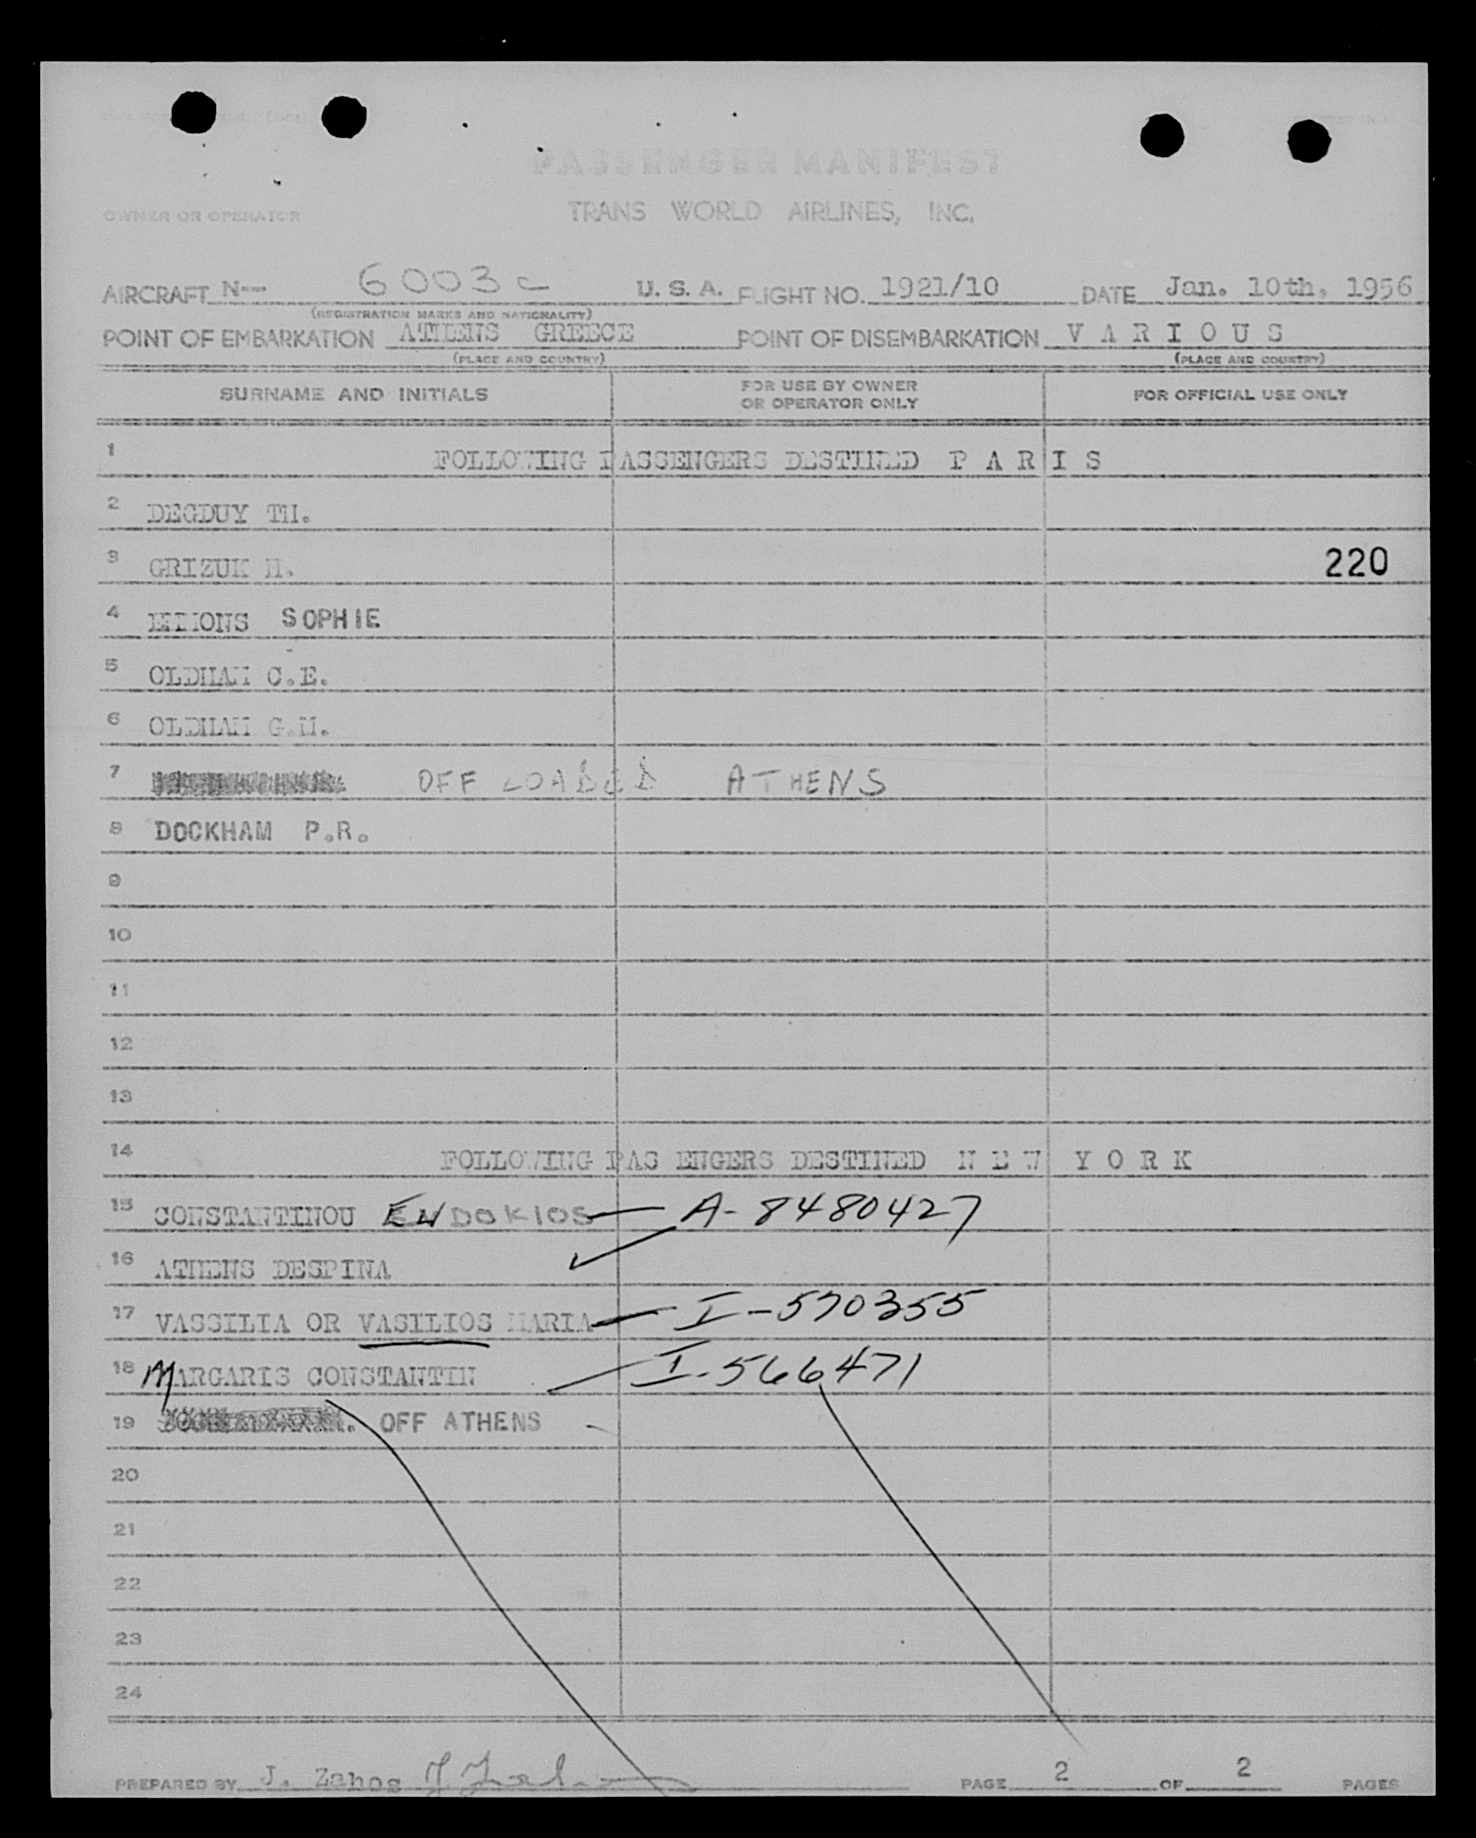 PASSENGER MANIFEST
OWNER OR OPERATOR TRANS WORLD AIRLINES, INC.
AIRCRAFT N-- 6003C U. S. A. FLIGHT NO. 1921/10 DATE Jan. 10th, 1956
(REGISTRATION MARKS AND NATIONALITY)
POINT OF EMBARKATION ATHENS GREECE POINT OF DISEMBARKATION V A R I O U S
(PLACE AND COUNTRY) (PLACE AND COUNTRY)
SURNAME AND INITIALS FOR USE BY OWNER OR OPERATOR ONLY FOR OFFICIAL USE ONLY
1 FOLLOWING PASSENGERS DESTINED P A R I S
2 DEGDUY TH.
3 GRIZUK H. 220
4 SOPHIE
5 OLDHAM C.E.
6 OLDHAM G.H.
7 OFF LOADED ATHENS
8 DOCKHAM P.R.
9
10
11
12
13
14 FOLLOWING PAS ENGERS DESTINED N E W Y O R K
15 CONSTANTINOU ENDOKIOS — A-8480427
16 ATHENS DESPINA ✓
17 VASSILIA OR VASILIOS MARIA — I-570355
18 MARGARIS CONSTANTIN — I-566471
19 OFF ATHENS -
20
21
22
23
24
PREPARED BY J. Zahos PAGE 2 OF 2 PAGES